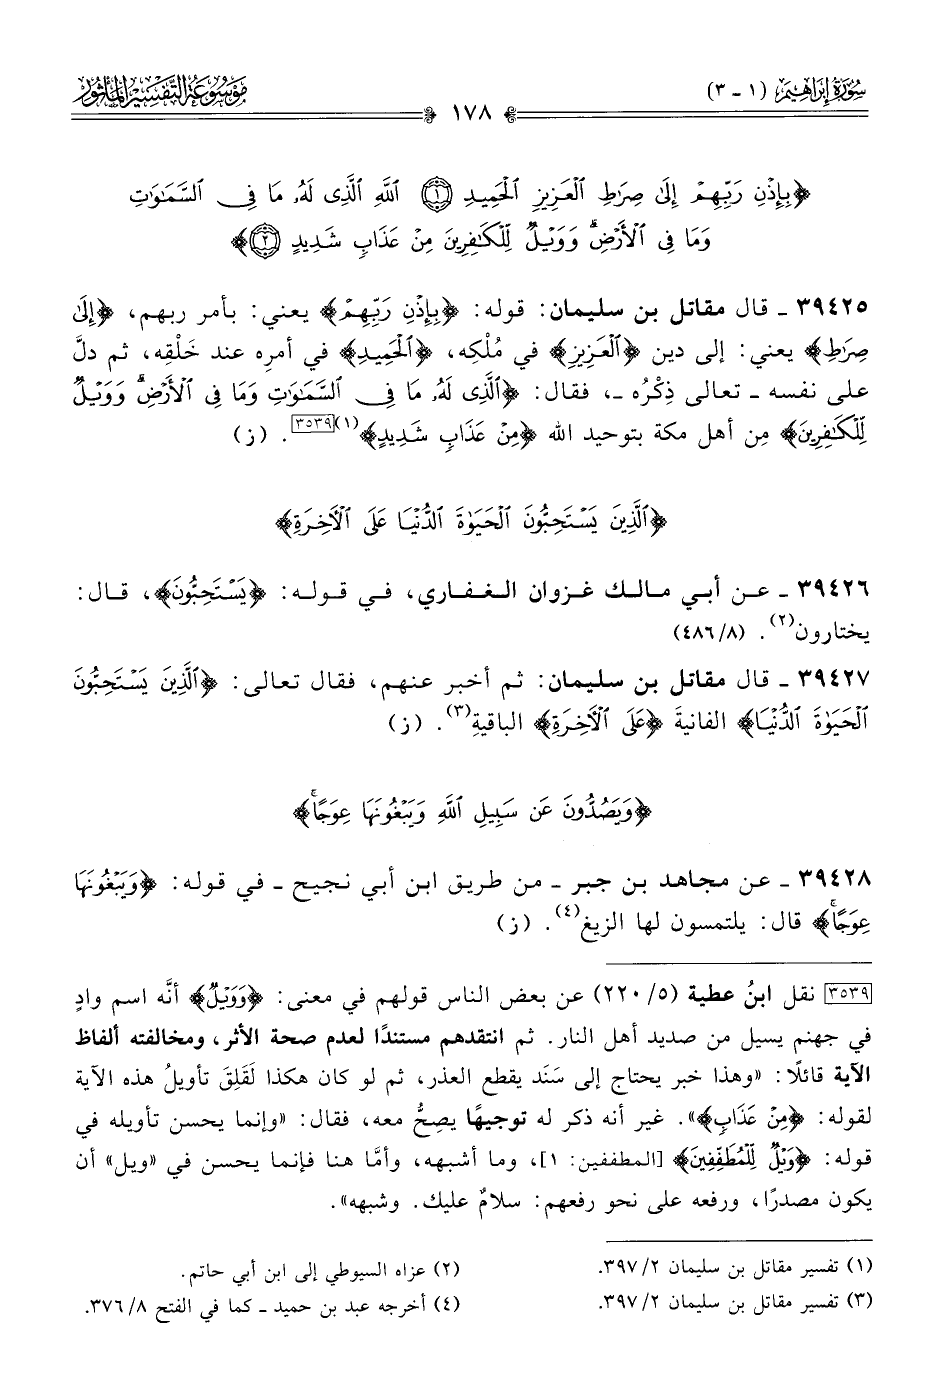 سُورَةُ إِبْرَاهِيمَ (١ - ٣)
١٧٨
مَوْسُوعَةُ التَّفْسِيرِ المَأْثُور
﴿بِإِذْنِ رَبِّهِمْ إِلَىٰ صِرَٰطِ ٱلْعَزِيزِ ٱلْحَمِيدِ ۝١ ٱللَّهِ ٱلَّذِى لَهُۥ مَا فِى ٱلسَّمَٰوَٰتِ
وَمَا فِى ٱلْأَرْضِ ۗ وَوَيْلٌ لِّلْكَٰفِرِينَ مِنْ عَذَابٍ شَدِيدٍ ۝٢﴾
٣٩٤٢٥ ـ قال مقاتل بن سليمان: قوله: ﴿بِإِذْنِ رَبِّهِمْ﴾ يعني: بأمر ربهم، ﴿إِلَىٰ
صِرَٰطِ﴾ يعني: إلى دين ﴿ٱلْعَزِيزِ﴾ في مُلْكِه، ﴿ٱلْحَمِيدِ﴾ في أمرِه عند خَلْقِه، ثم دلَّ
على نفسه ـ تعالى ذِكْرُه ـ، فقال: ﴿ٱلَّذِى لَهُۥ مَا فِى ٱلسَّمَٰوَٰتِ وَمَا فِى ٱلْأَرْضِ ۗ وَوَيْلٌ
لِّلْكَٰفِرِينَ﴾ مِن أهل مكة بتوحيد الله ﴿مِنْ عَذَابٍ شَدِيدٍ﴾(١) [٣٥٣٩]. (ز)
﴿ٱلَّذِينَ يَسْتَحِبُّونَ ٱلْحَيَوٰةَ ٱلدُّنْيَا عَلَى ٱلْأَخِرَةِ﴾
٣٩٤٢٦ ـ عن أبي مالك غزوان الغفاري، في قوله: ﴿يَسْتَحِبُّونَ﴾، قال:
يختارون(٢). (٤٨٦/٨)
٣٩٤٢٧ ـ قال مقاتل بن سليمان: ثم أخبر عنهم، فقال تعالى: ﴿ٱلَّذِينَ يَسْتَحِبُّونَ
ٱلْحَيَوٰةَ ٱلدُّنْيَا﴾ الفانيةَ ﴿عَلَى ٱلْأَخِرَةِ﴾ الباقيةِ(٣). (ز)
﴿وَيَصُدُّونَ عَن سَبِيلِ ٱللَّهِ وَيَبْغُونَهَا عِوَجًا ۚ﴾
٣٩٤٢٨ ـ عن مجاهد بن جبر ـ من طريق ابن أبي نجيح ـ في قوله: ﴿وَيَبْغُونَهَا
عِوَجًا ۚ﴾ قال: يلتمسون لها الزيغ(٤). (ز)
[٣٥٣٩] نقل ابنُ عطية (٢٢٠/٥) عن بعض الناس قولهم في معنى: ﴿وَوَيْلٌ﴾ أنَّه اسم وادٍ
في جهنم يسيل من صديد أهل النار. ثم انتقدهم مستندًا لعدم صحة الأثر، ومخالفته ألفاظ
الآية قائلًا: «وهذا خبر يحتاج إلى سَنَد يقطع العذر، ثم لو كان هكذا لَقَلِقَ تأويلُ هذه الآية
لقوله: ﴿مِنْ عَذَابٍ﴾». غير أنه ذكر له توجيهًا يصِحُّ معه، فقال: «وإنما يحسن تأويله في
قوله: ﴿وَيْلٌ لِّلْمُطَفِّفِينَ﴾ [المطففين: ١]، وما أشبهه، وأمَّا هنا فإنما يحسن في «ويل» أن
يكون مصدرًا، ورفعه على نحو رفعهم: سلامٌ عليك. وشبهه».
(١) تفسير مقاتل بن سليمان ٣٩٧/٢.
(٢) عزاه السيوطي إلى ابن أبي حاتم.
(٣) تفسير مقاتل بن سليمان ٣٩٧/٢.
(٤) أخرجه عبد بن حميد ـ كما في الفتح ٣٧٦/٨.